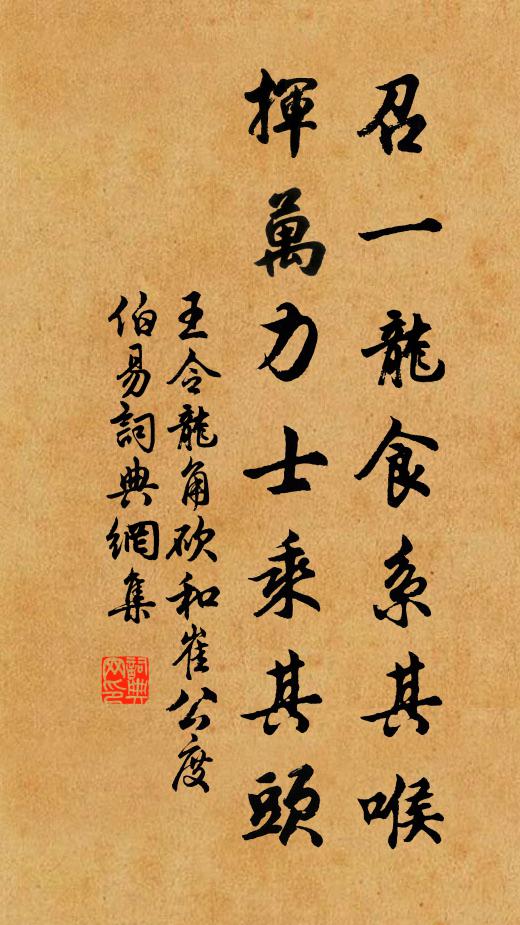 召一龍食系其喉
揮萬力士乘其頭
王令龍角砍和崔公度
伯易詞典網集
詞典网印